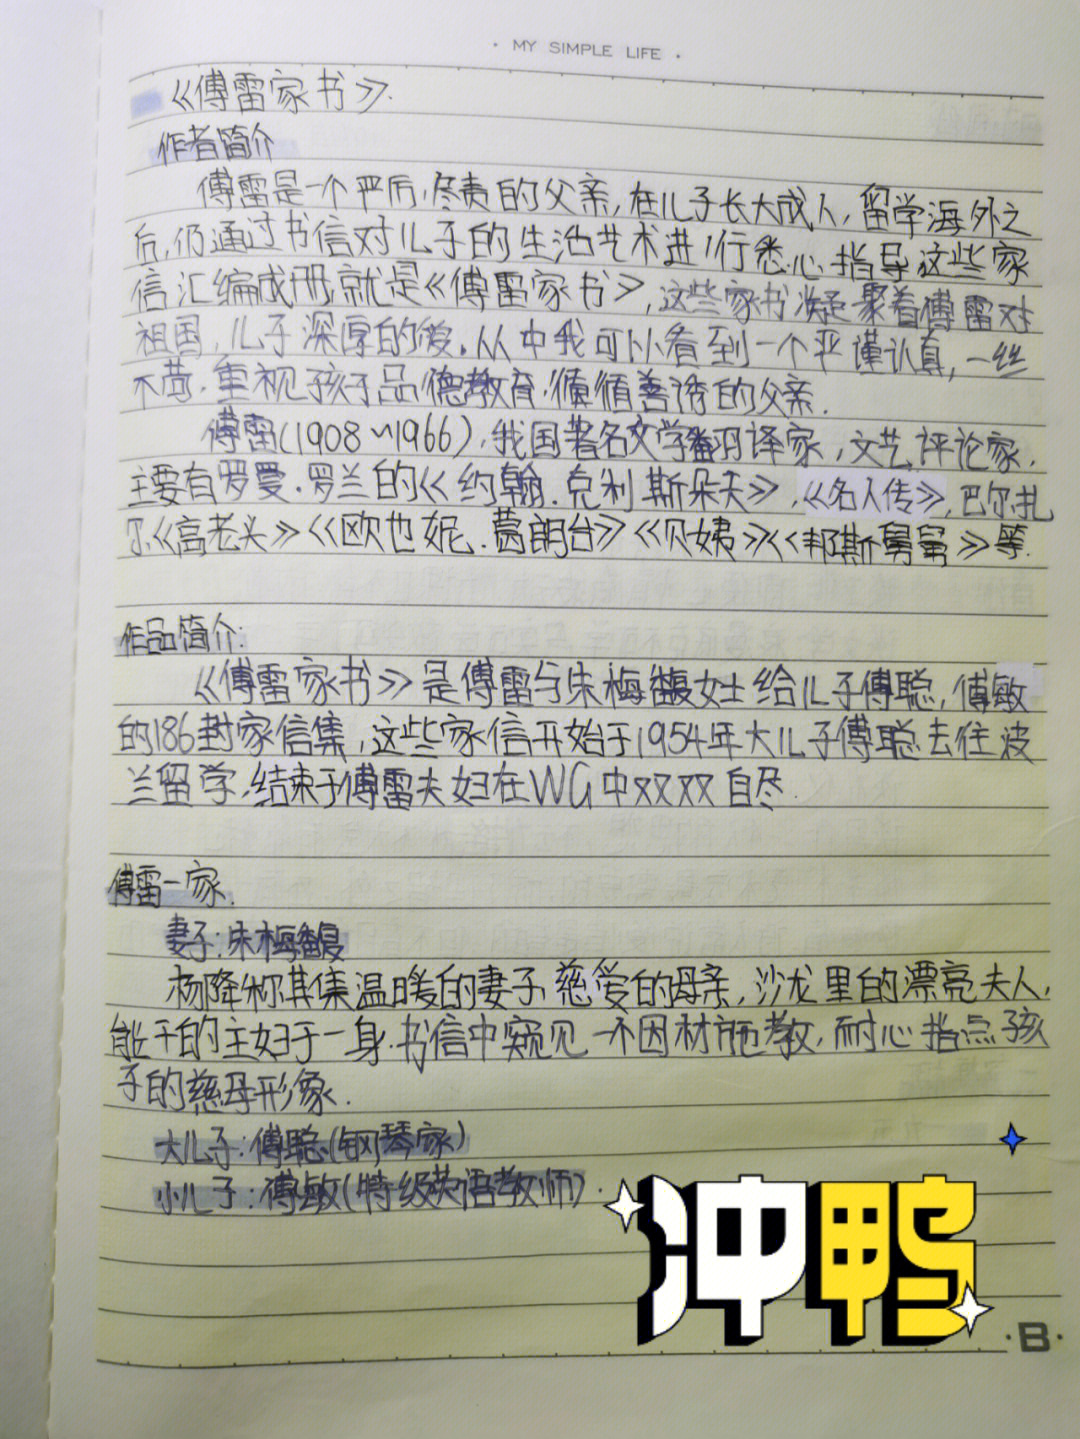 · MY SIMPLE LIFE ·
《傅雷家书》.
作者简介
傅雷是一个严厉,尽责的父亲,在儿子长大成人,留学海外之
后,仍通过书信对儿子的生活艺术进行悉心指导这些家
信汇编成册,就是《傅雷家书》,这些家书凝聚着傅雷对
祖国,儿子深厚的爱.从中我可以看到一个严谨认真,一丝
不苟,重视孩子品德教育,循循善诱的父亲.
傅雷(1908~1966),我国著名文学翻译家,文艺评论家,
主要有罗曼.罗兰的《约翰.克利斯朵夫》,《名人传》,巴尔扎
尔《高老头》《欧也妮.葛朗台》《贝姨》《邦斯舅舅》等.
作品简介:
《傅雷家书》是傅雷与朱梅馥女士给儿子傅聪,傅敏
的186封家信集,这些家信开始于1954年大儿子傅聪去往波
兰留学,结束于傅雷夫妇在WG中XXXX自尽.
傅雷一家.
妻子:朱梅馥
杨降称其集温暖的妻子,慈爱的母亲,沙龙里的漂亮夫人,
能干的主妇于一身.书信中窥见一不因材施教,耐心指点孩
子的慈母形象.
大儿子:傅聪(钢琴家)
小儿子:傅敏(特级英语教师).
冲鸭
·B·